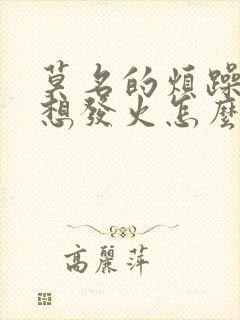 莫名的煩躁
想發火怎麼
高麗萍